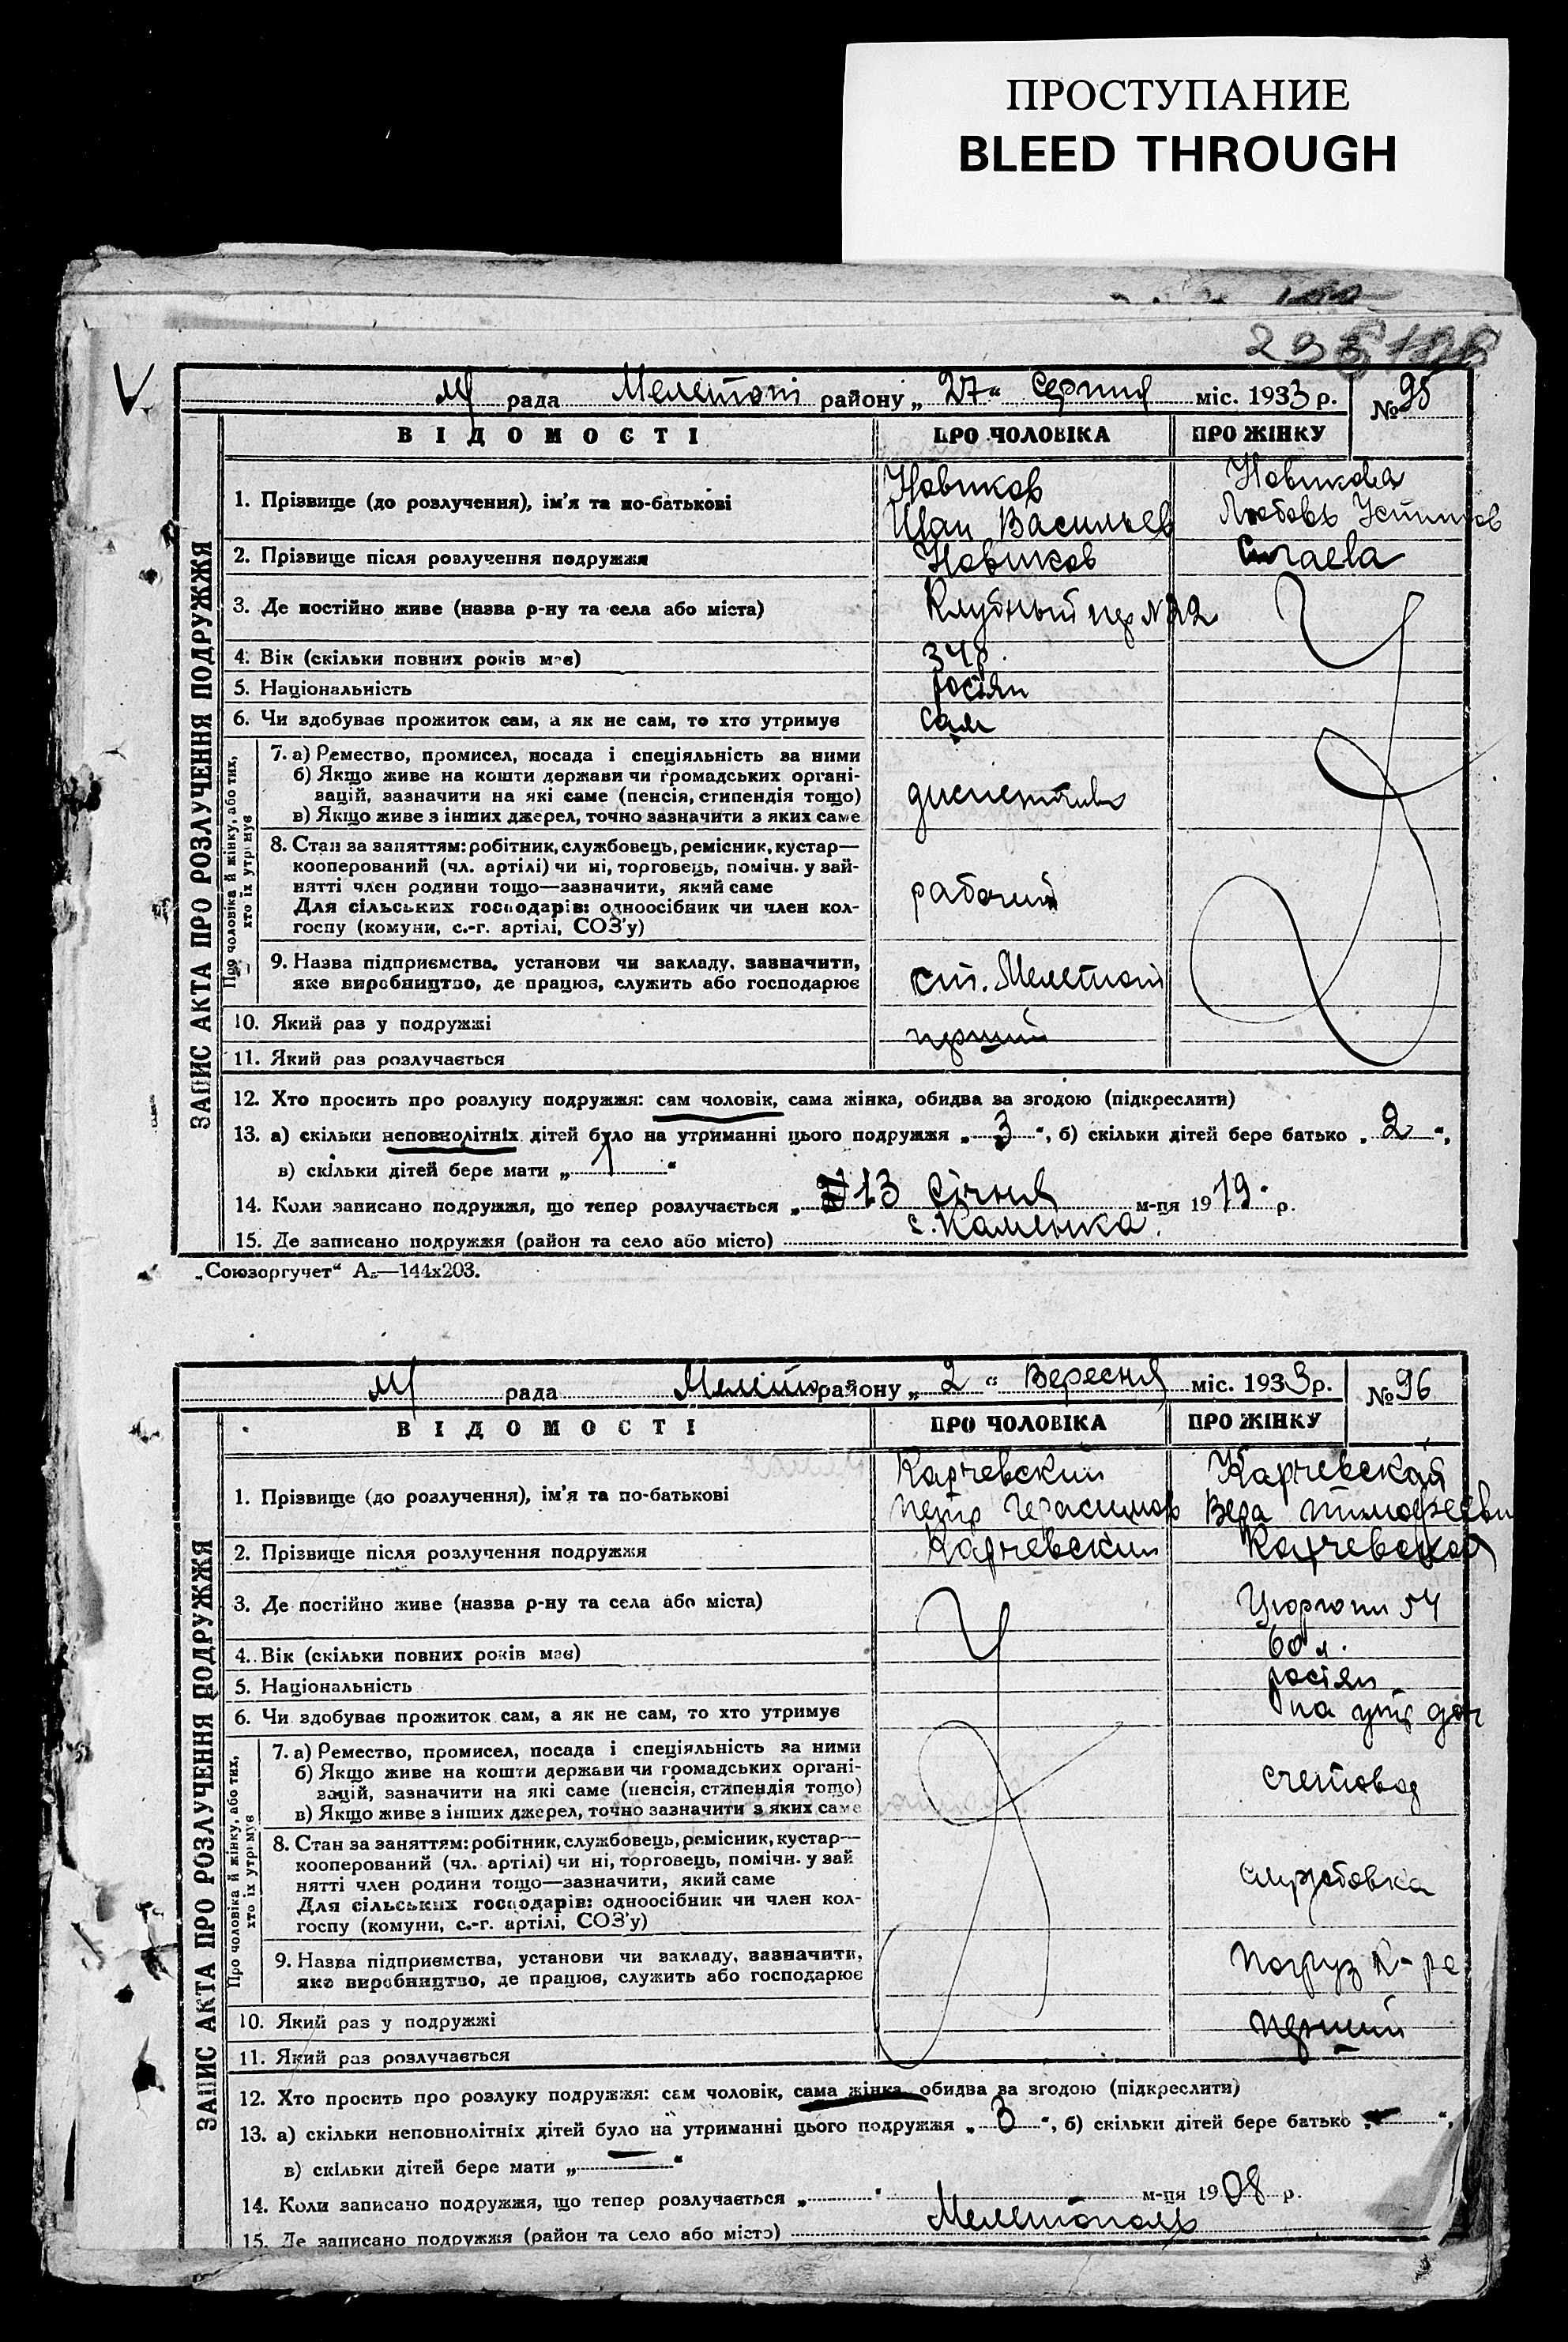 ПРОСТУПАНИЕ
BLEED THROUGH
ЗАПИС АКТА ПРО РОЗЛУЧЕННЯ ПОДРУЖЖЯ
М рада Мелетоп району „27“ Серпня міс. 1933 р. № 95
ВІДОМОСТІ ПРО ЧОЛОВІКА ПРО ЖІНКУ
1. Прізвище (до розлучення), ім'я та по-батькові Новиков Новикова
Иван Васильев Любовь Устинов
2. Прізвище після розлучення подружжя Новиков
3. Де постійно живе (назва р-ну та села або міста) Клубный пер № 22
4. Вік (скільки повних років має) 34 р.
5. Національність росіян
6. Чи здобуває прожиток сам, а як не сам, то хто утримує сам
Про чоловіка й жінку, або тих, хто їх утримує
7. а) Ремество, промисел, посада і спеціяльність за ними
б) Якщо живе на кошти держави чи громадських органі-
зацій, зазначити на які саме (пенсія, стипендія тощо)
в) Якщо живе з інших джерел, точно зазначити з яких саме
8. Стан за заняттям: робітник, службовець, ремісник, кустар—
кооперований (чл. артілі) чи ні, торговець, помічн. у зай-
нятті член родини тощо—зазначити, який саме
Для сільських господарів: одноосібник чи член кол-
госпу (комуни, с.-г. артілі, СОЗ'у)
рабочий
9. Назва підприємства, установи чи закладу, зазначити,
яке виробництво, де працює, служить або господарює
ст. Мелетоп
10. Який раз у подружжі перший
11. Який раз розлучається
12. Хто просить про розлуку подружжя: сам чоловік, сама жінка, обидва за згодою (підкреслити)
13. а) скільки неповнолітніх дітей було на утриманні цього подружжя „3“, б) скільки дітей бере батько „2“,
в) скільки дітей бере мати „1“
14. Коли записано подружжя, що тепер розлучається „13 Січня м-ця 1919 р.
15. Де записано подружжя (район та село або місто) с. Каменка.
„Союзоргучет“ А₅—144х203.
ЗАПИС АКТА ПРО РОЗЛУЧЕННЯ ПОДРУЖЖЯ
М рада Мелето району „2“ Вересня міс. 1933 р. № 96
ВІДОМОСТІ ПРО ЧОЛОВІКА ПРО ЖІНКУ
1. Прізвище (до розлучення), ім'я та по-батькові Карчевский Карчевская
Петр Герасимов Вера Тимофеевн
2. Прізвище після розлучення подружжя Карчевский Карчевская
3. Де постійно живе (назва р-ну та села або міста) Цюрюпи 54
4. Вік (скільки повних років має) 60 л.
5. Національність росіян
6. Чи здобуває прожиток сам, а як не сам, то хто утримує на утр доч
Про чоловіка й жінку, або тих, хто їх утримує
7. а) Ремество, промисел, посада і спеціяльність за ними
б) Якщо живе на кошти держави чи громадських органі-
зацій, зазначити на які саме (пенсія, стипендія тощо)
в) Якщо живе з інших джерел, точно зазначити з яких саме
счетовод
8. Стан за заняттям: робітник, службовець, ремісник, кустар—
кооперований (чл. артілі) чи ні, торговець, помічн. у зай
нятті член родини тощо—зазначити, який саме
Для сільських господарів: одноосібник чи член кол-
госпу (комуни, с.-г. артілі, СОЗ'у)
службовка
9. Назва підприємства, установи чи закладу, зазначити,
яке виробництво, де працює, служить або господарює
погруз к-ре
10. Який раз у подружжі перший
11. Який раз розлучається
12. Хто просить про розлуку подружжя: сам чоловік, сама жінка, обидва за згодою (підкреслити)
13. а) скільки неповнолітніх дітей було на утриманні цього подружжя „3“, б) скільки дітей бере батько „—“,
в) скільки дітей бере мати „—“
14. Коли записано подружжя, що тепер розлучається „ “ м-ця 1908 р.
15. Де записано подружжя (район та село або місто) Мелетополь